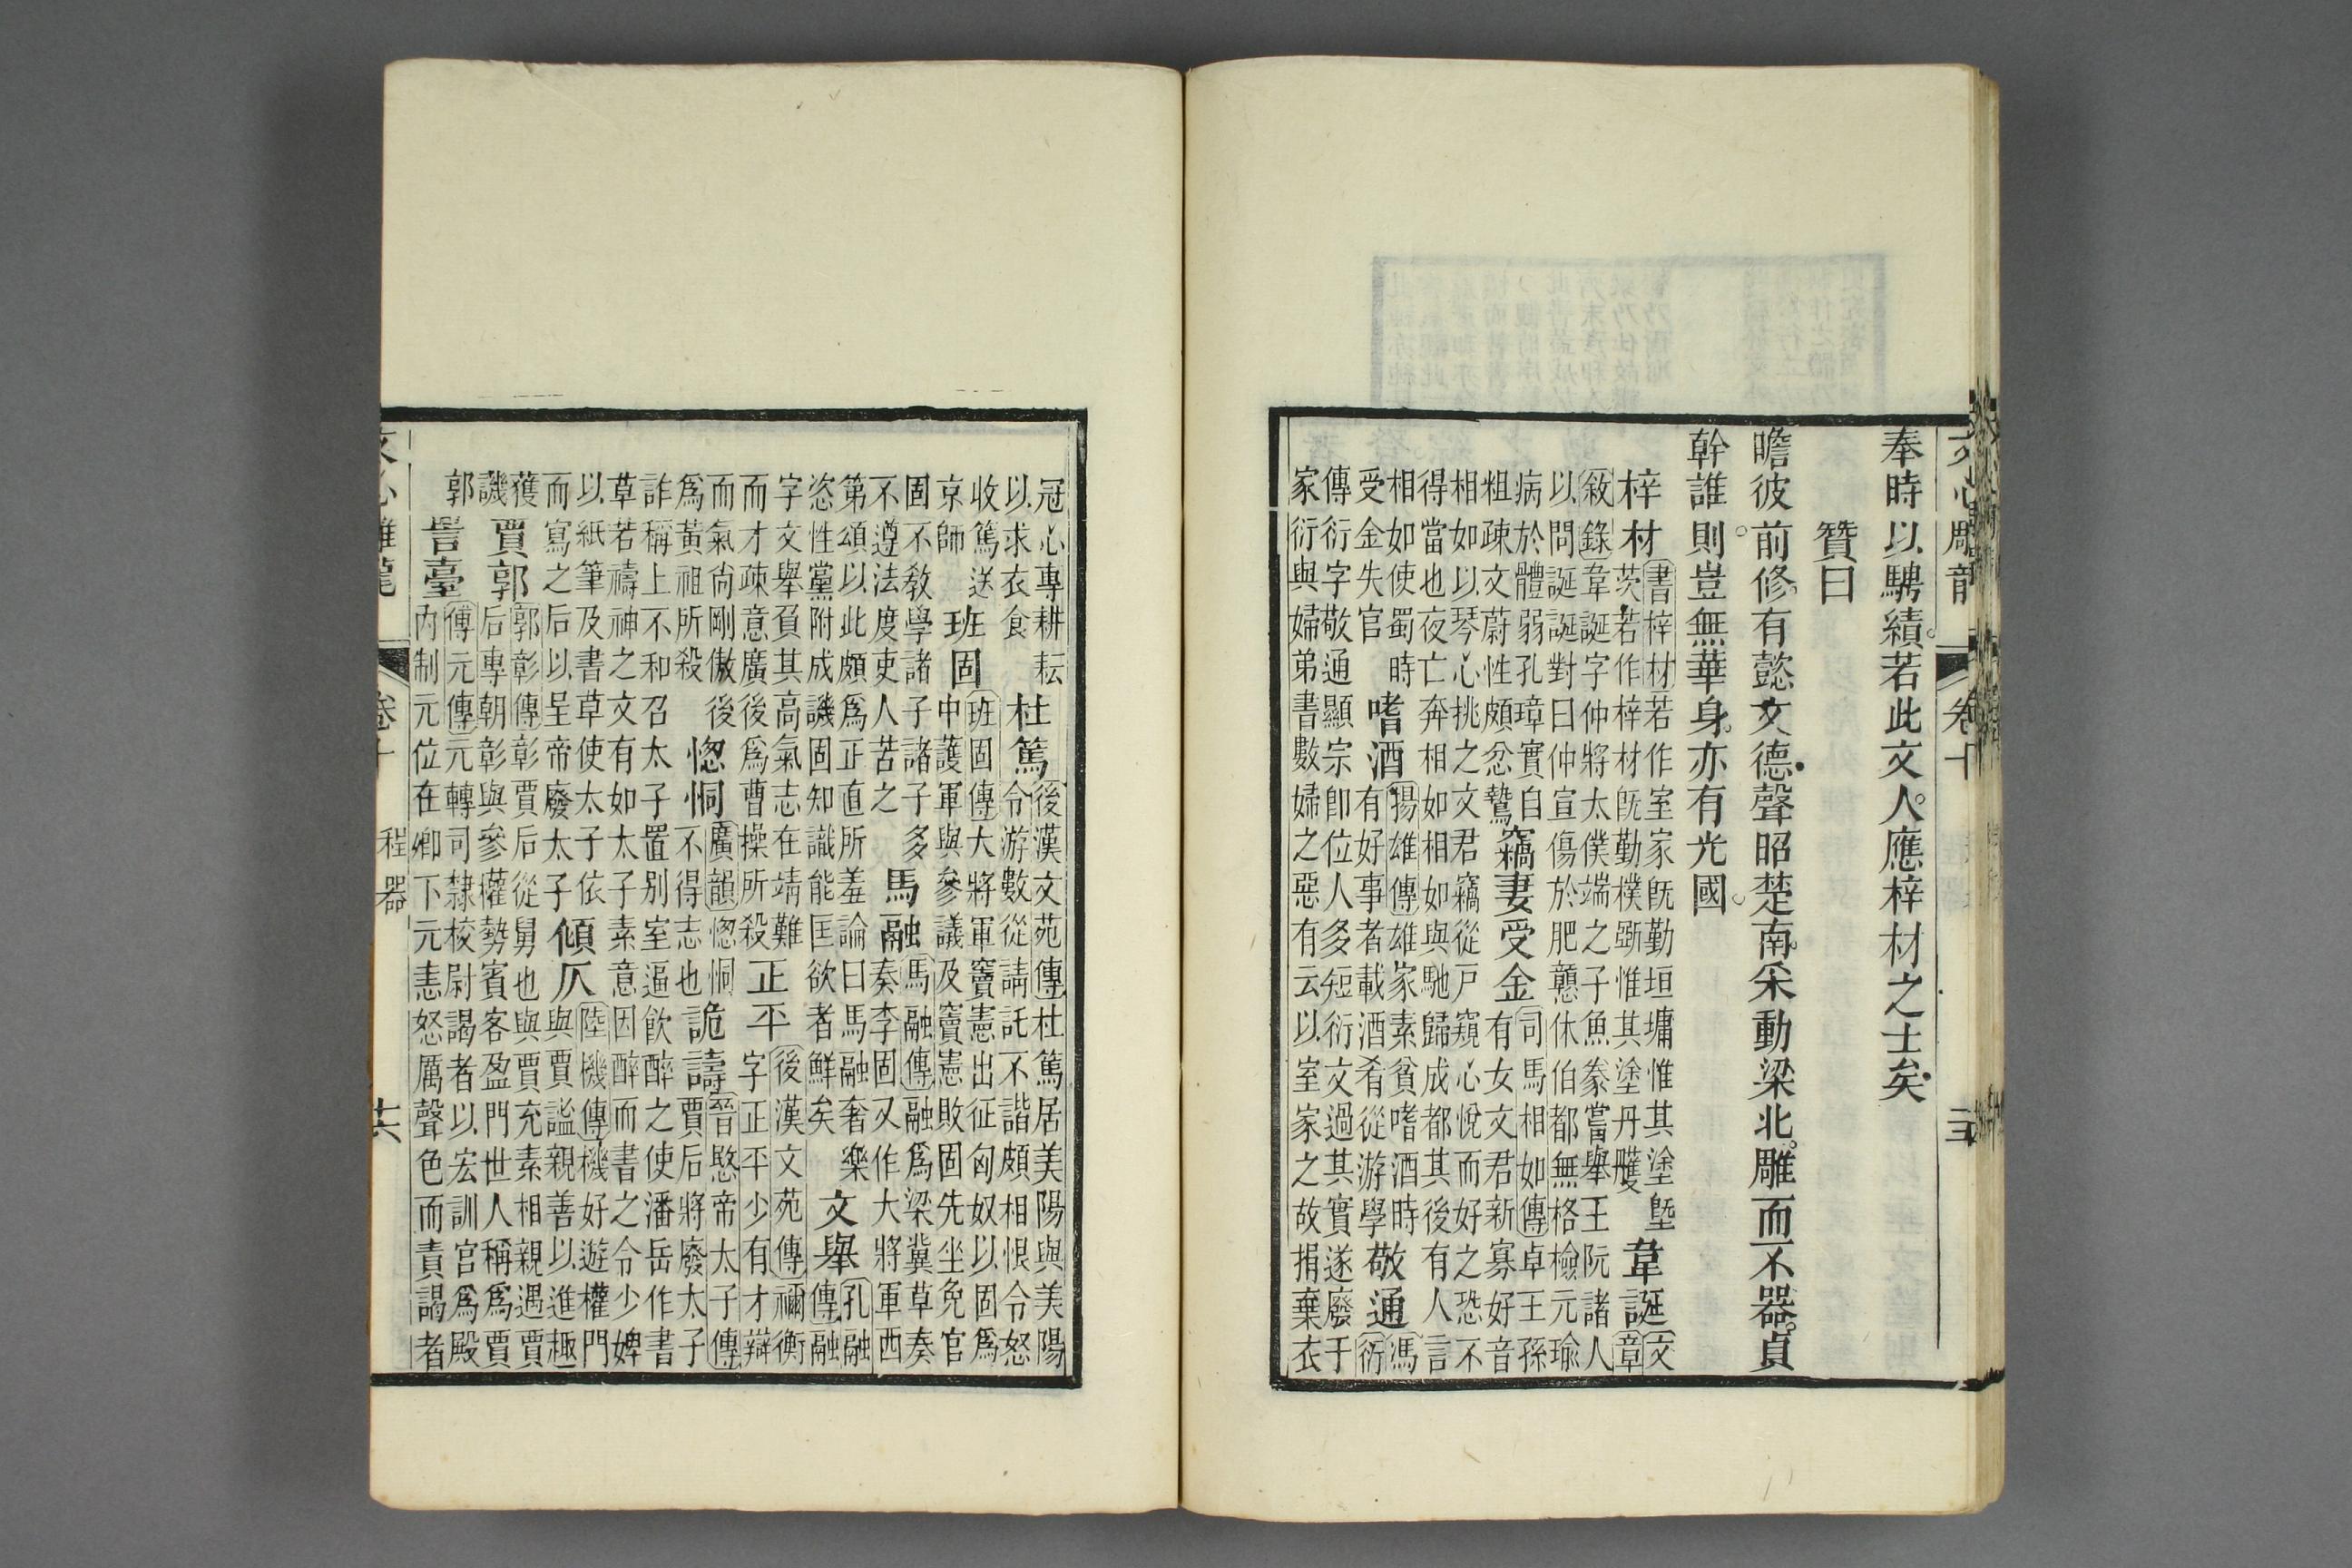 文心雕龍 卷十
奉時以騁績若此文人應梓材之士矣
贊曰
瞻彼前修有懿文德聲昭楚南采動梁北雕而不器貞
幹誰則豈無華身亦有光國
梓材書梓材若作室家旣勤垣墉惟其塗塈茨若作梓材旣勤樸斲惟其塗丹雘韋誕文章
敘錄韋誕字仲將太僕端之子魚豢當舉王阮諸人以問誕誕對曰仲宣傷於肥戇休伯都無格檢元瑜
病於體弱孔璋實自粗疎文蔚性頗忿鷙竊妻受金司馬相如傳卓王孫有女文君新寡好音
相如以琴心挑之文君竊從戶窺心悅而好之恐不得當也夜亡奔相如相如與馳歸成都其後有人言
相如使蜀時受金失官嗜酒揚雄傳雄家素貧嗜酒時有好事者載酒肴從游學敬通馮衍
傳衍字敬通顯宗卽位人多短衍文過其實遂廢于家衍與婦弟書數婦之惡有云以室家之故捐棄衣
冠心專耕耘以求衣食杜篤後漢文苑傳杜篤居美陽與美陽令游數從請託不諧頗相恨令怒
收篤送京師班固班固傳大將軍竇憲出征匈奴以固爲中護軍與參議及竇憲敗固先坐免官
固不教學諸子諸子多不遵法度吏人苦之馬融馬融傳融爲梁冀草奏奏李固又作大將軍西
第頌以此頗爲正直所羞論曰馬融奢樂恣性黨附成譏固知識能匡欲者鮮矣文舉孔融傳融
字文舉負其高氣志在靖難而才疎意廣後爲曹操所殺正平後漢文苑傳禰衡字正平少有才辯
而氣尚剛傲後爲黃祖所殺惚恫廣韻惚恫不得志也詭譸晉愍帝太子傳賈后將廢太子
詐稱上不和召太子置別室逼飮醉之使潘岳作書草若禱神之文有如太子素意因醉而書之令少婢
以紙筆及書草使太子依而寫之后以呈帝廢太子傾仄陸機傳機好遊權門與賈謐親善以進趣
獲譏賈郭郭彰傳彰賈后從舅也與賈充素相親遇賈后專朝彰與參權勢賓客盈門世人稱爲賈
郭詈臺傅元傳元轉司隸校尉謁者以宏訓宮爲殿內制元位在卿下元恚怒厲聲色而責謁者
文心雕龍 卷十 程器